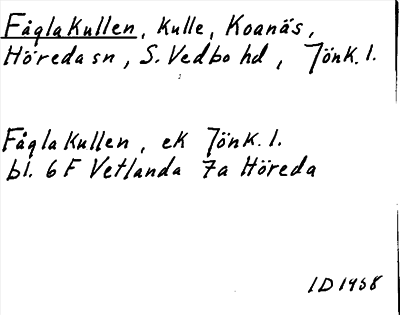 Fåglakullen, kulle, Koanäs,
Höreda sn, S. Vedbo hd, Jönk. l.
Fåglakullen, ek Jönk. l.
bl. 6 F Vetlanda 7a Höreda
ID 1958